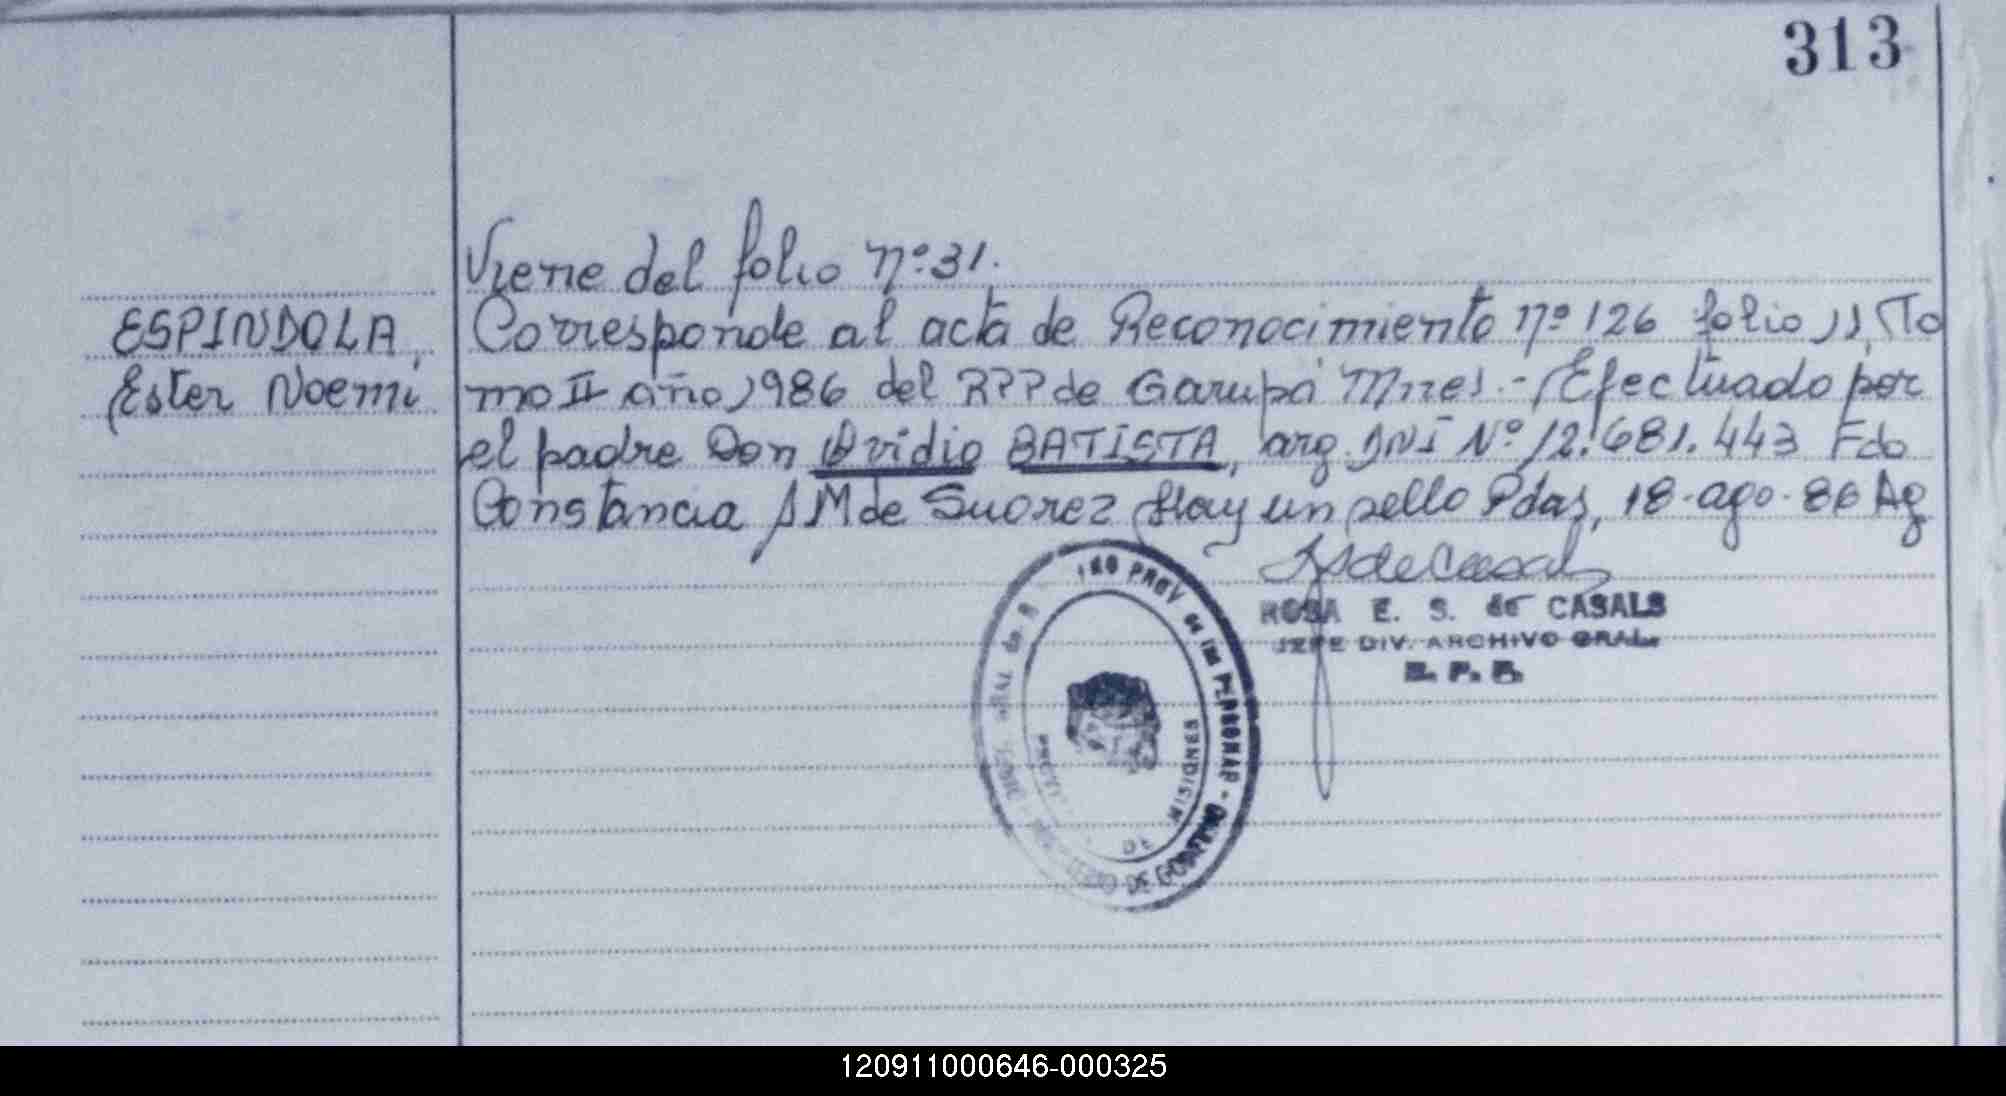 313
Viene del folio nº 31.
ESPINDOLA, Corresponde al acta de Reconocimiento nº 126 folio 11, To
Ester Noemi mo II año 1986 del RPP de Garupá Mnes.- Efectuado por
el padre Don Ovidio BATISTA, arg. DNI Nº 12.681.443 Fdo
Constancia A M de Suarez Hay un sello Pdas, 18-ago-86 Ag
ROSA E. S. de CASALS
JEFE DIV. ARCHIVO GRAL.
R. P. P.
PROV de las PERSONAS - MINISTERIO DE GOBIERNO
DE MISIONES
120911000646-000325